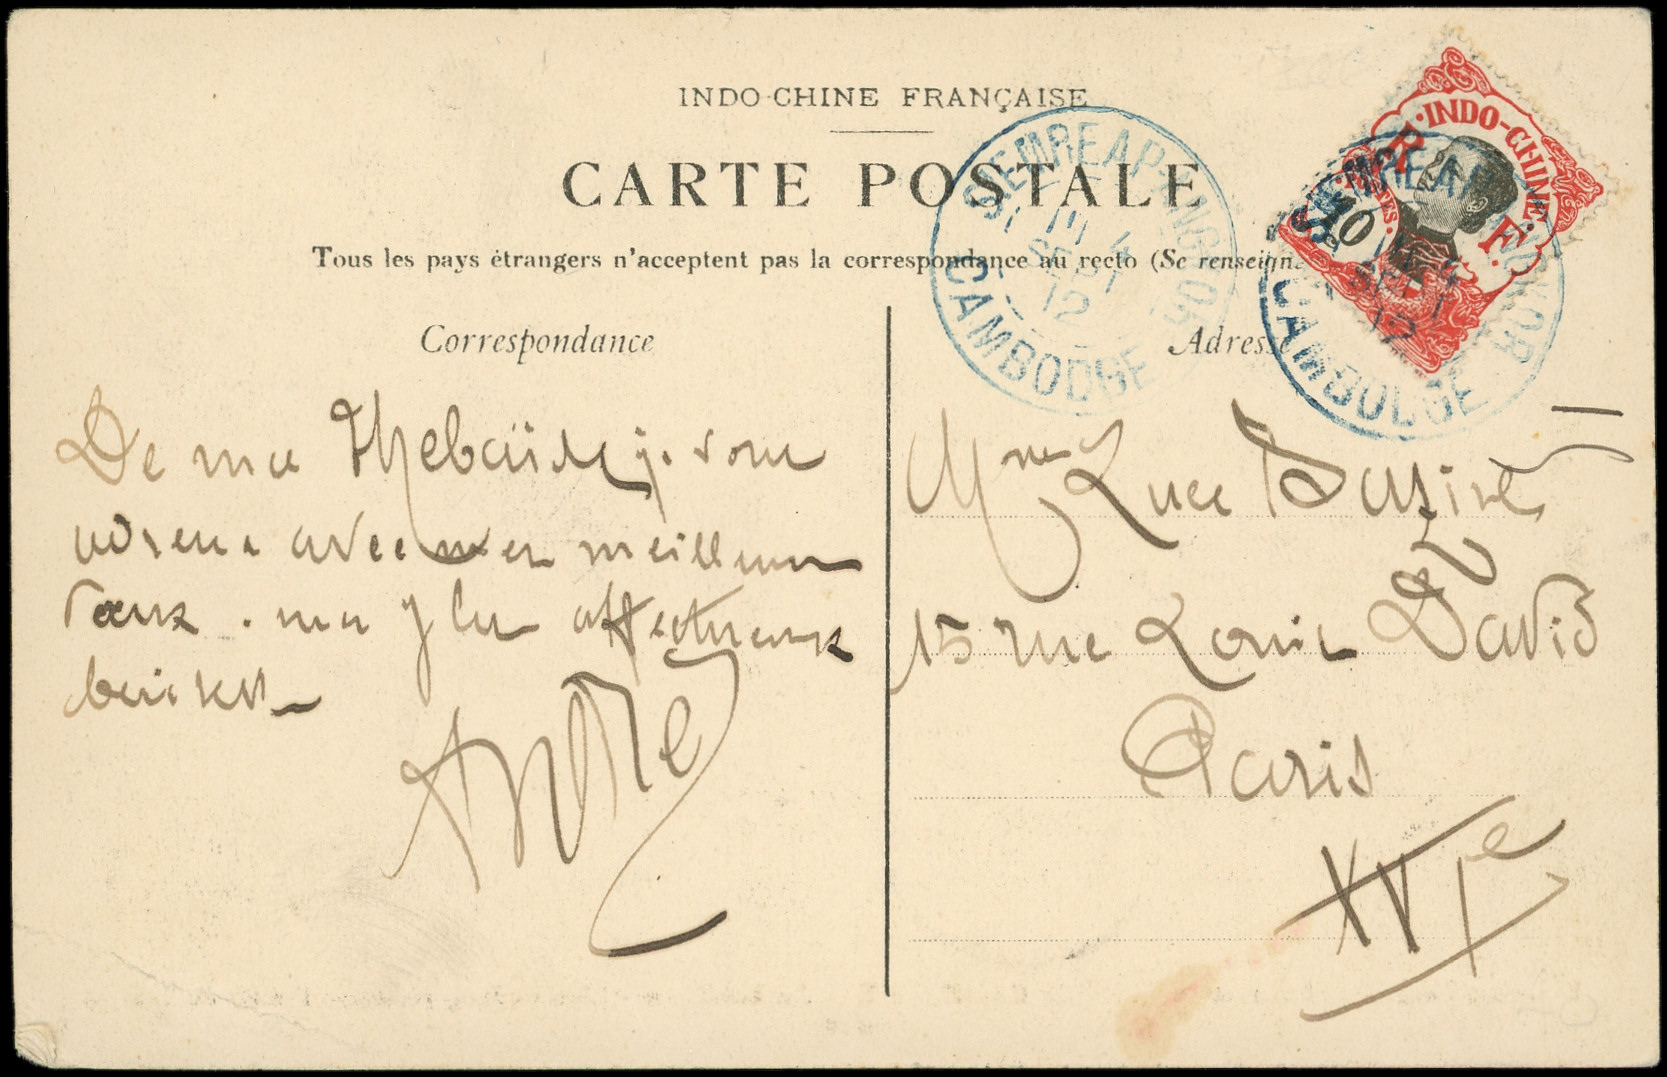 INDO-CHINE FRANÇAISE
CARTE POSTALE
Tous les pays étrangers n'acceptent pas la correspondance au recto (Se renseign
Correspondance
Adresse
INDO-CHINE
R F
10
SIEMREAP-ANGKOR
4
SEPT
12
CAMBODGE
SIEMREAP-ANGKOR
SEPT
12
CAMBODGE
De ma Thebaïde je vous
envoie avec mes meilleurs
vœux . mes plus affectueux
baisers
André
Mme Luce
15 rue Louis David
Paris
XVIe